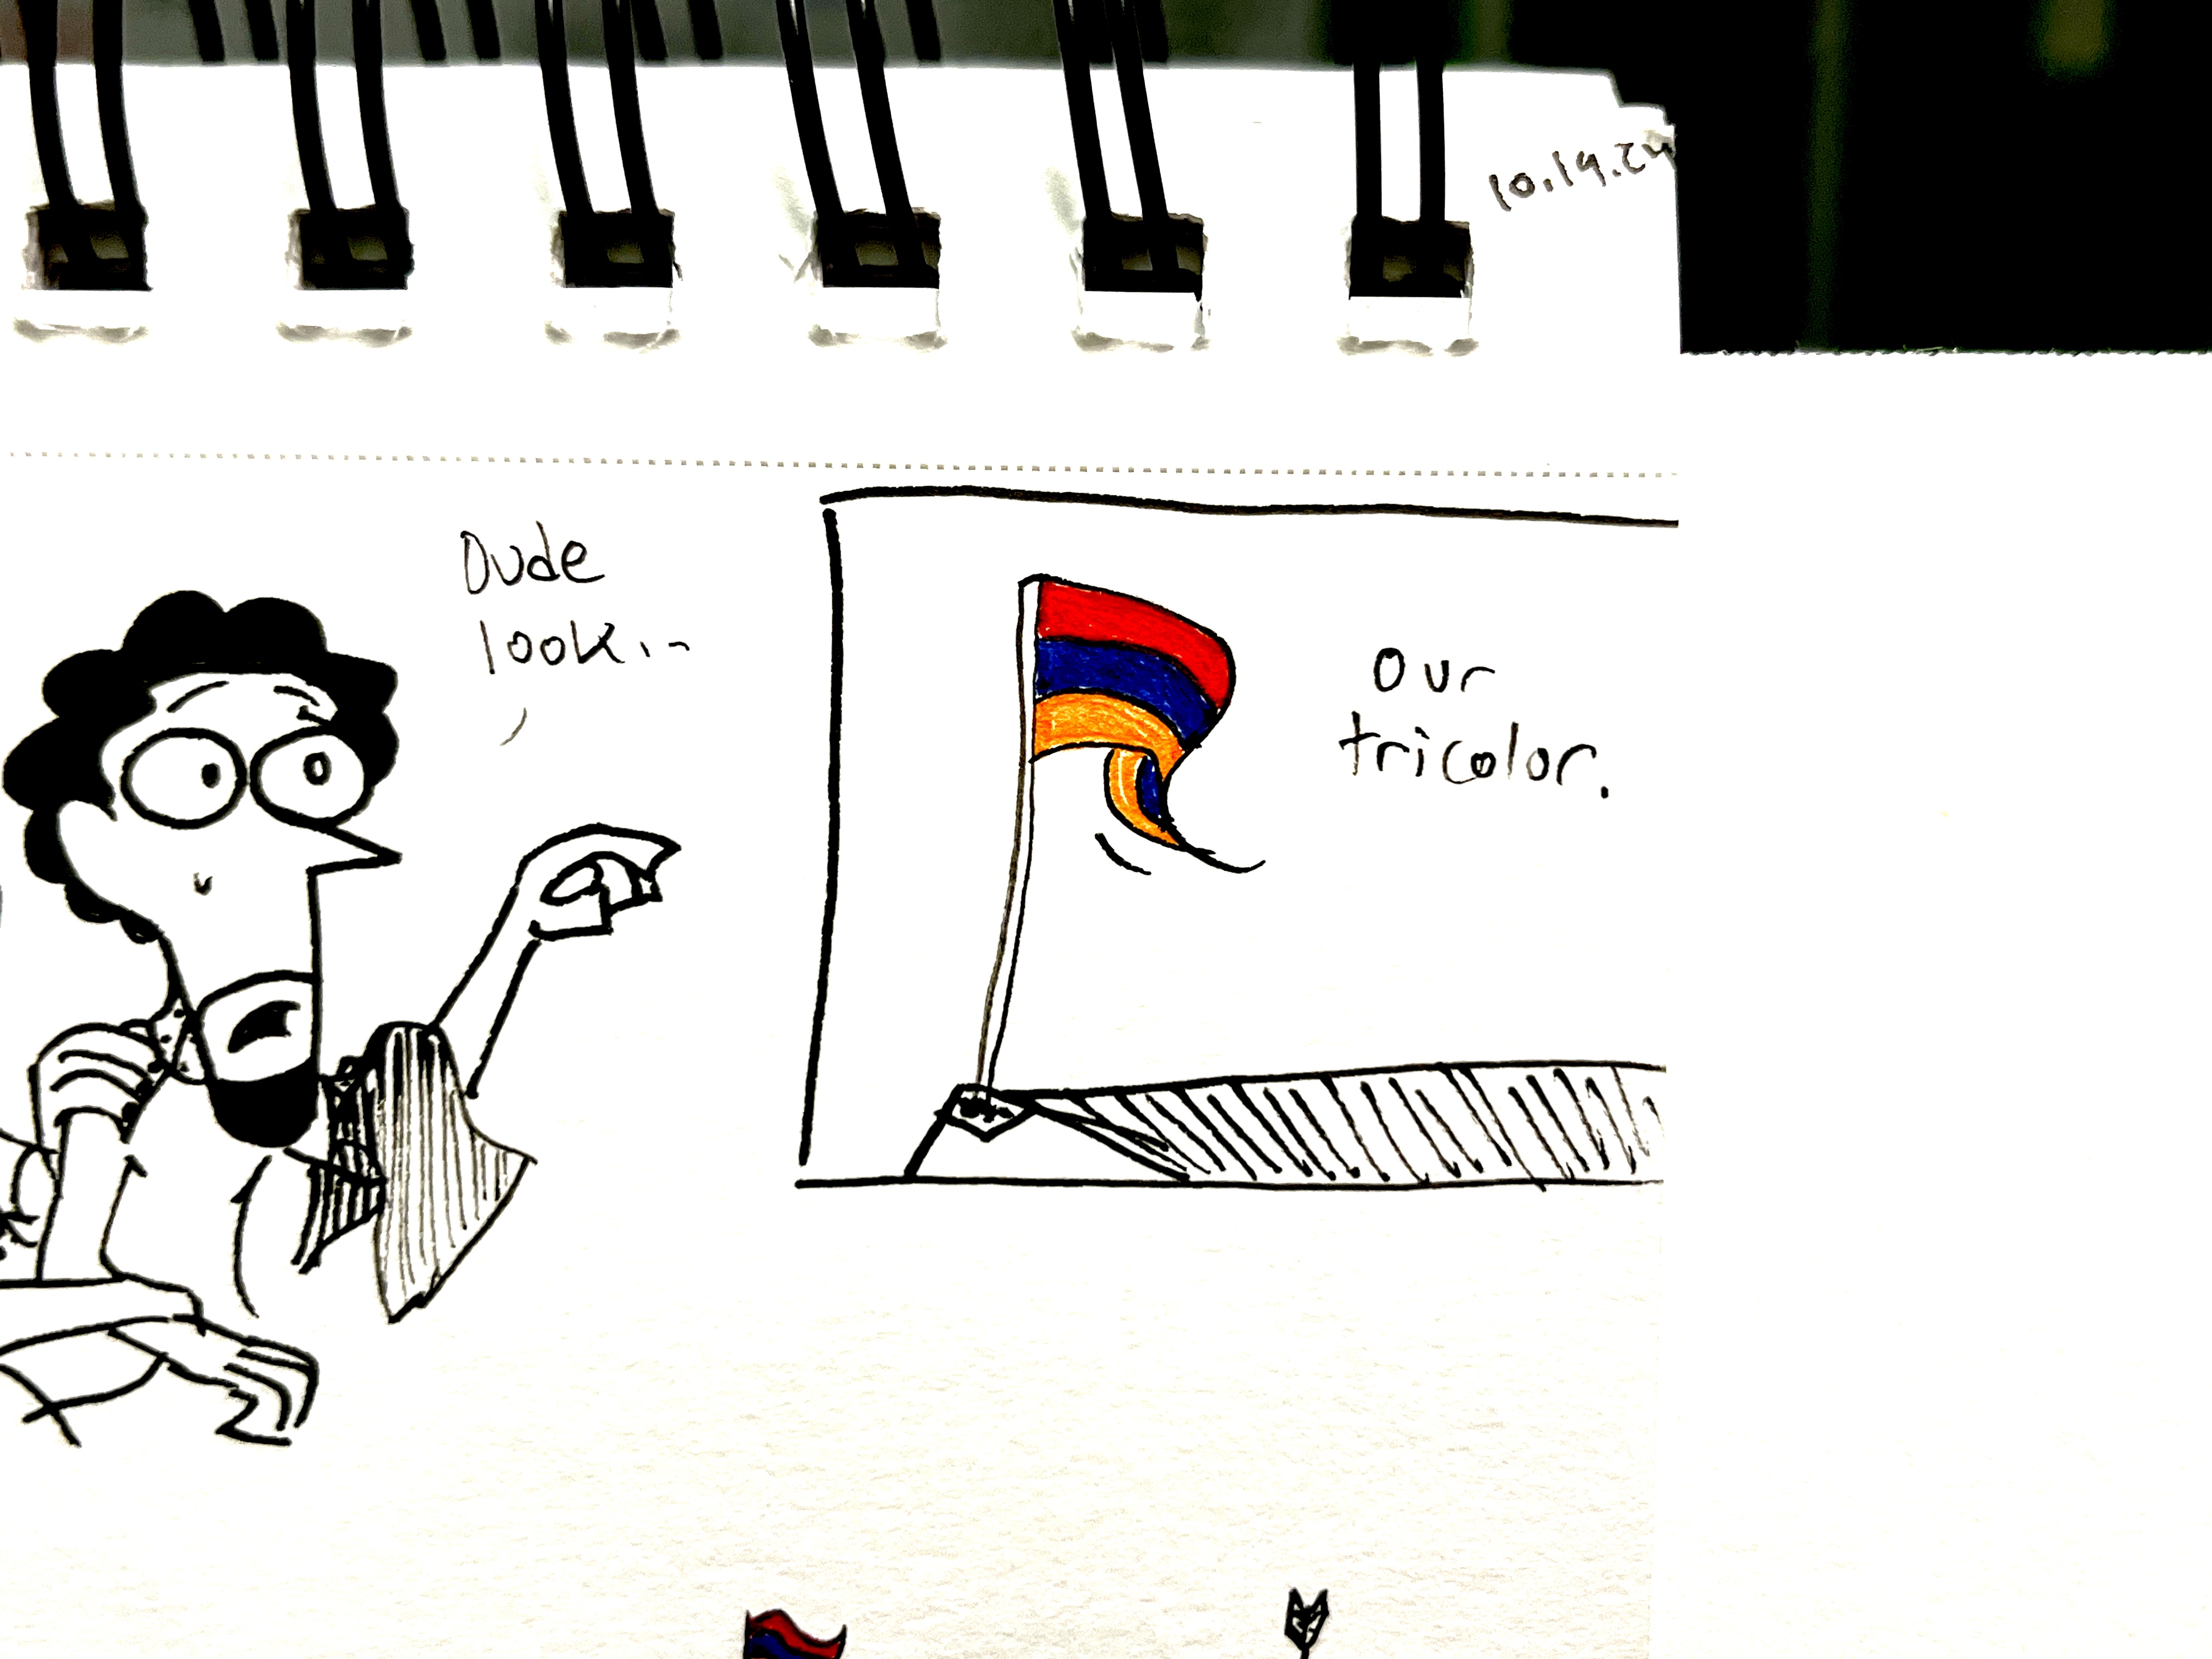 10.19.24
Dude
look...
our
tricolor.